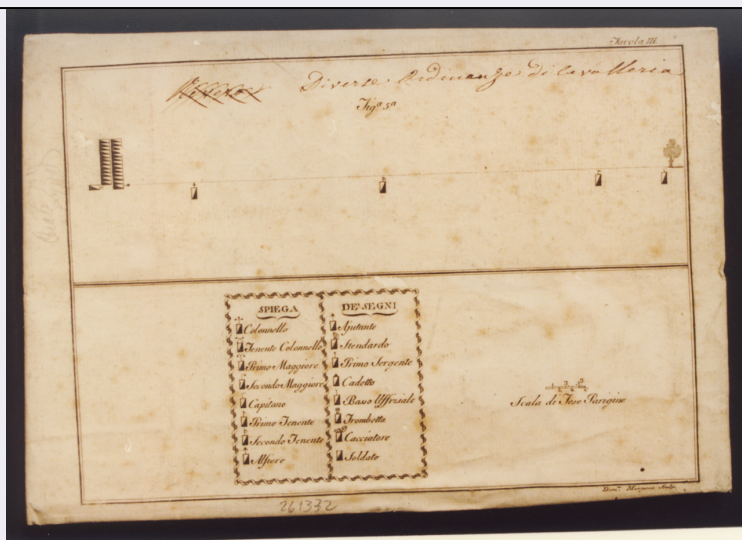 Tavola III.
Diverse Ordinanze di Cavalleria
Figa. 5a
SPIEGA DE' SEGNI
Colonnello
Tenente Colonnello
Primo Maggiore
Secondo Maggiore
Capitano
Primo Tenente
Secondo Tenente
Alfiere
Ajutante
Stendardo
Primo Sergente
Cadetto
Basso Uffiziale
Trombetta
Cacciatore
Soldato
1 2 3
Scala di Tese Parigine
Sculp.
261332